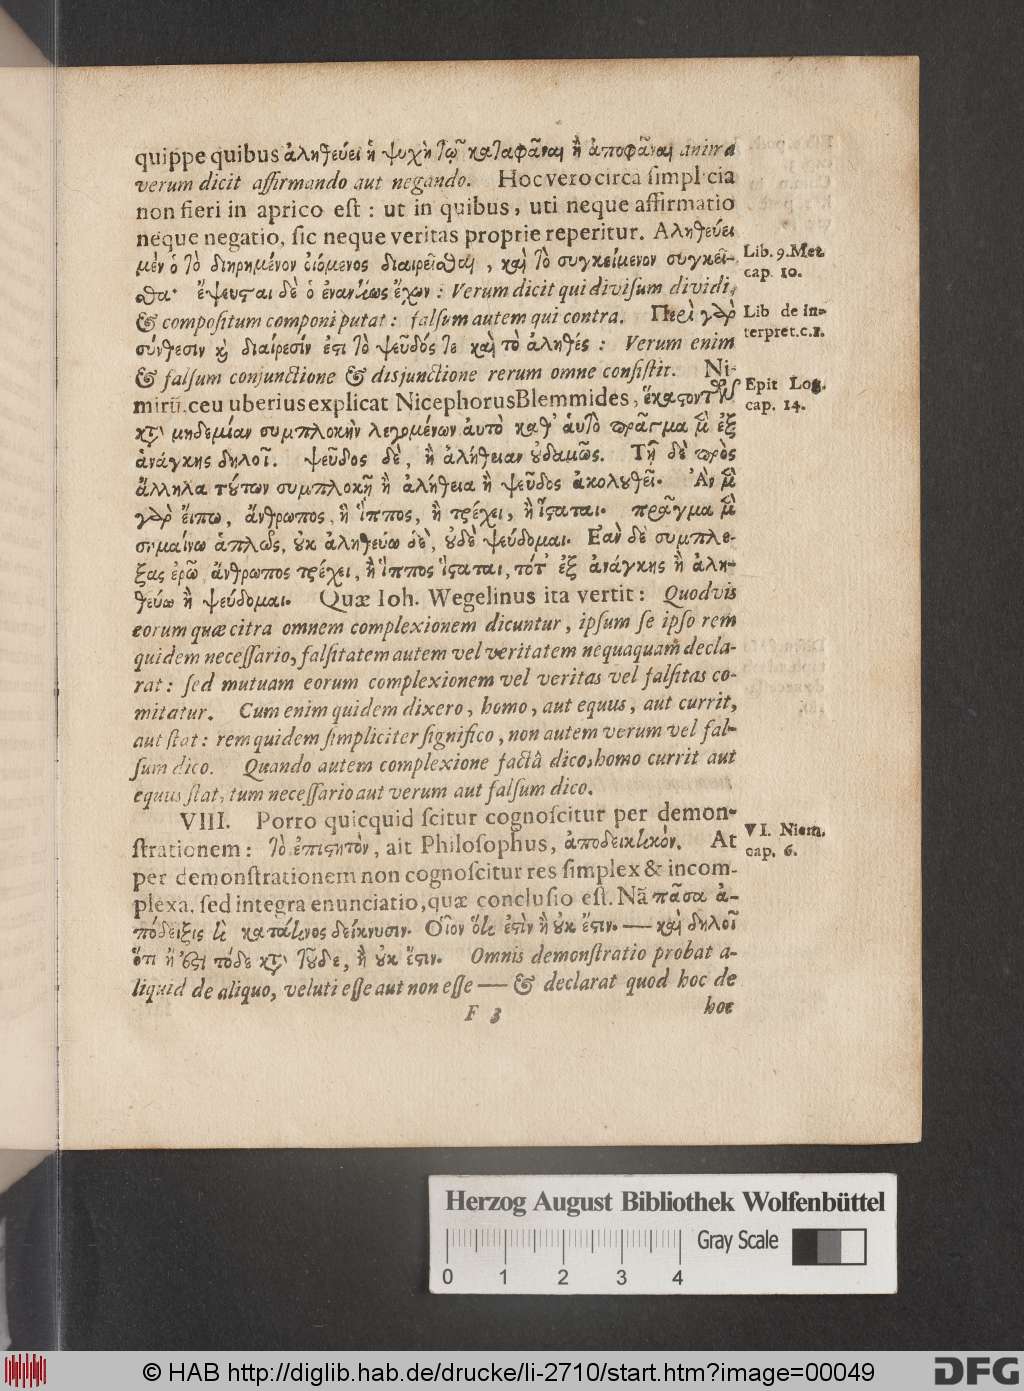 quippe quibus ἀληθεύει ἡ ψυχὴ τῷ καταφάναι ἢ ἀποφάναι anima
verum dicit affirmando aut negando. Hoc vero circa simplicia
non fieri in aprico est : ut in quibus, uti neque affirmatio
neque negatio, sic neque veritas proprie reperitur. Αληθεύει
μὲν ὁ τὸ διηρημένον οἰόμενος διαιρεῖσθαι, καὶ τὸ συγκείμενον συγκεῖ-
σθαι· ἔψευσται δὲ ὁ ἐναντίως ἔχων : Verum dicit qui divisum dividi,
& compositum componi putat : falsum autem qui contra. Περὶ γὰρ
σύνθεσιν καὶ διαίρεσίν ἐστι τὸ ψεῦδός τε καὶ τὸ ἀληθές : Verum enim
& falsum conjunctione & disjunctione rerum omne consistit. Ni-
mirũ. ceu uberius explicat Nicephorus Blemmides, ἕκαστον τῶν
κτ' μηδεμίαν συμπλοκὴν λεγομένων ἀυτὸ καθ' ἁυτὸ πρᾶγμα μὲν ἐξ
ἀνάγκης δηλοῖ. ψεῦδος δὲ, ἢ ἀλήθειαν ὐδαμῶς. Τῇ δὲ πρὸς
ἄλληλα τύτων συμπλοκῇ ἢ ἀλήθεια ἢ ψεῦδος ἀκολυθεῖ. Ἀν μὲν
γὰρ ἔιπω, ἄνθρωπος, ἢ ἵππος, ἢ τρέχει, ἢ ἵσταται. πρᾶγμα μὲν
σημαίνω ἁπλῶς, ὐκ ἀληθεύω δὲ, ὐδὲ ψεύδομαι. Εαν δὲ συμπλέ-
ξας ἐρῶ ἄνθρωπος τρέχει, ἢ ἵππος ἵσταται, τότ' ἐξ ἀνάγκης ἢ ἀλη-
θεύω ἢ ψεύδομαι. Quæ Ioh. Wegelinus ita vertit : Quodvis
eorum quæ citra omnem complexionem dicuntur, ipsum se ipso rem
quidem necessario, falsitatem autem vel veritatem nequaquam decla-
rat : sed mutuam eorum complexionem vel veritas vel falsitas co-
mitatur. Cum enim quidem dixero, homo, aut equus, aut currit,
aut stat : rem quidem simpliciter significo, non autem verum vel fal-
sum dico. Quando autem complexione factâ dico, homo currit aut
equus stat, tum necessario aut verum aut falsum dico.
VIII. Porro quicquid scitur cognoscitur per demon-
strationem : τὸ ἐπιστητὸν, ait Philosophus, ἀποδεικτικόν. At
per demonstrationem non cognoscitur res simplex & incom-
plexa, sed integra enunciatio, quæ conclusio est. Nã πᾶσα ἀ-
πόδειξις τὶ κατά τινος δείκνυσιν. Οἷον ὅτι ἐστὶν ἢ ὐκ ἔστιν. — καὶ δηλοῖ
ὅτι ἢ ἐστι τόδε κτ' τῦδε, ἢ ὐκ ἔστιν. Omnis demonstratio probat a-
liquid de aliquo, veluti esse aut non esse — & declarat quod hoc de
F 3 hoc
Lib. 9. Met.
cap. 10.
Lib de in-
terpret. c. 1.
Epit Log.
cap. 14.
VI. Nicom.
cap. 6.
Herzog August Bibliothek Wolfenbüttel
Gray Scale
0 1 2 3 4
© HAB http://diglib.hab.de/drucke/li-2710/start.htm?image=00049
DFG